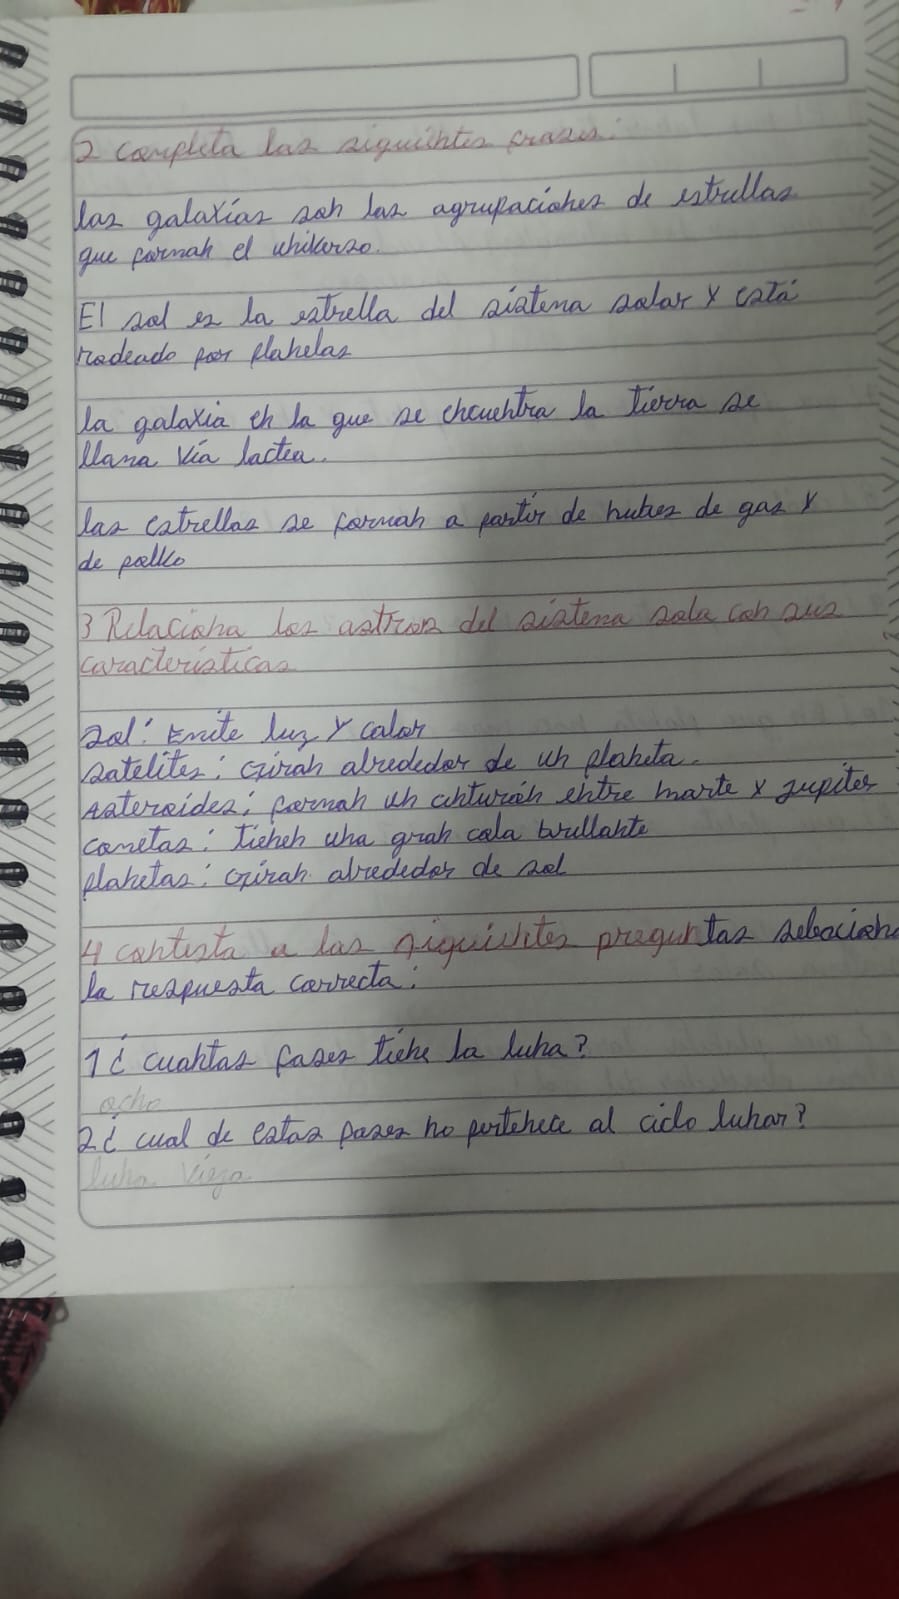 2 completa las siguientes frases:
las galaxías son las agrupaciones de estrellas
que forman el universo.
El sol es la estrella del sistema solar y está
rodeado por planetas
la galaxia en la que se encuentra la tierra se
llama Vía lactea.
las estrellas se forman a partir de nubes de gas y
de polvo
3 Relaciona los astros del sistema sola con sus
características
sol: Emite luz y calor
satelites: Giran alrededor de un planeta.
Asteroides: forman un cinturón entre marte y jupiter
cometas: tienen una gran cola brillante
planetas: Giran alrededor de sol
4 contesta a las siguientes preguntas
la respuesta correcta:
1¿ cuantas fases tiene la luna?
ocho
2¿ cual de estas fases no pertenece al ciclo lunar?
luna vieja